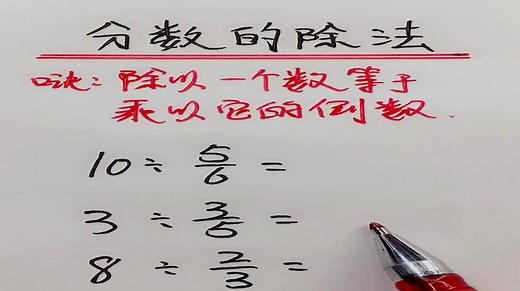 分数的除法
口诀：除以一个数等于
乘以它的倒数.
10 ÷ 5/6 =
3 ÷ 3/5 =
8 ÷ 2/3 =